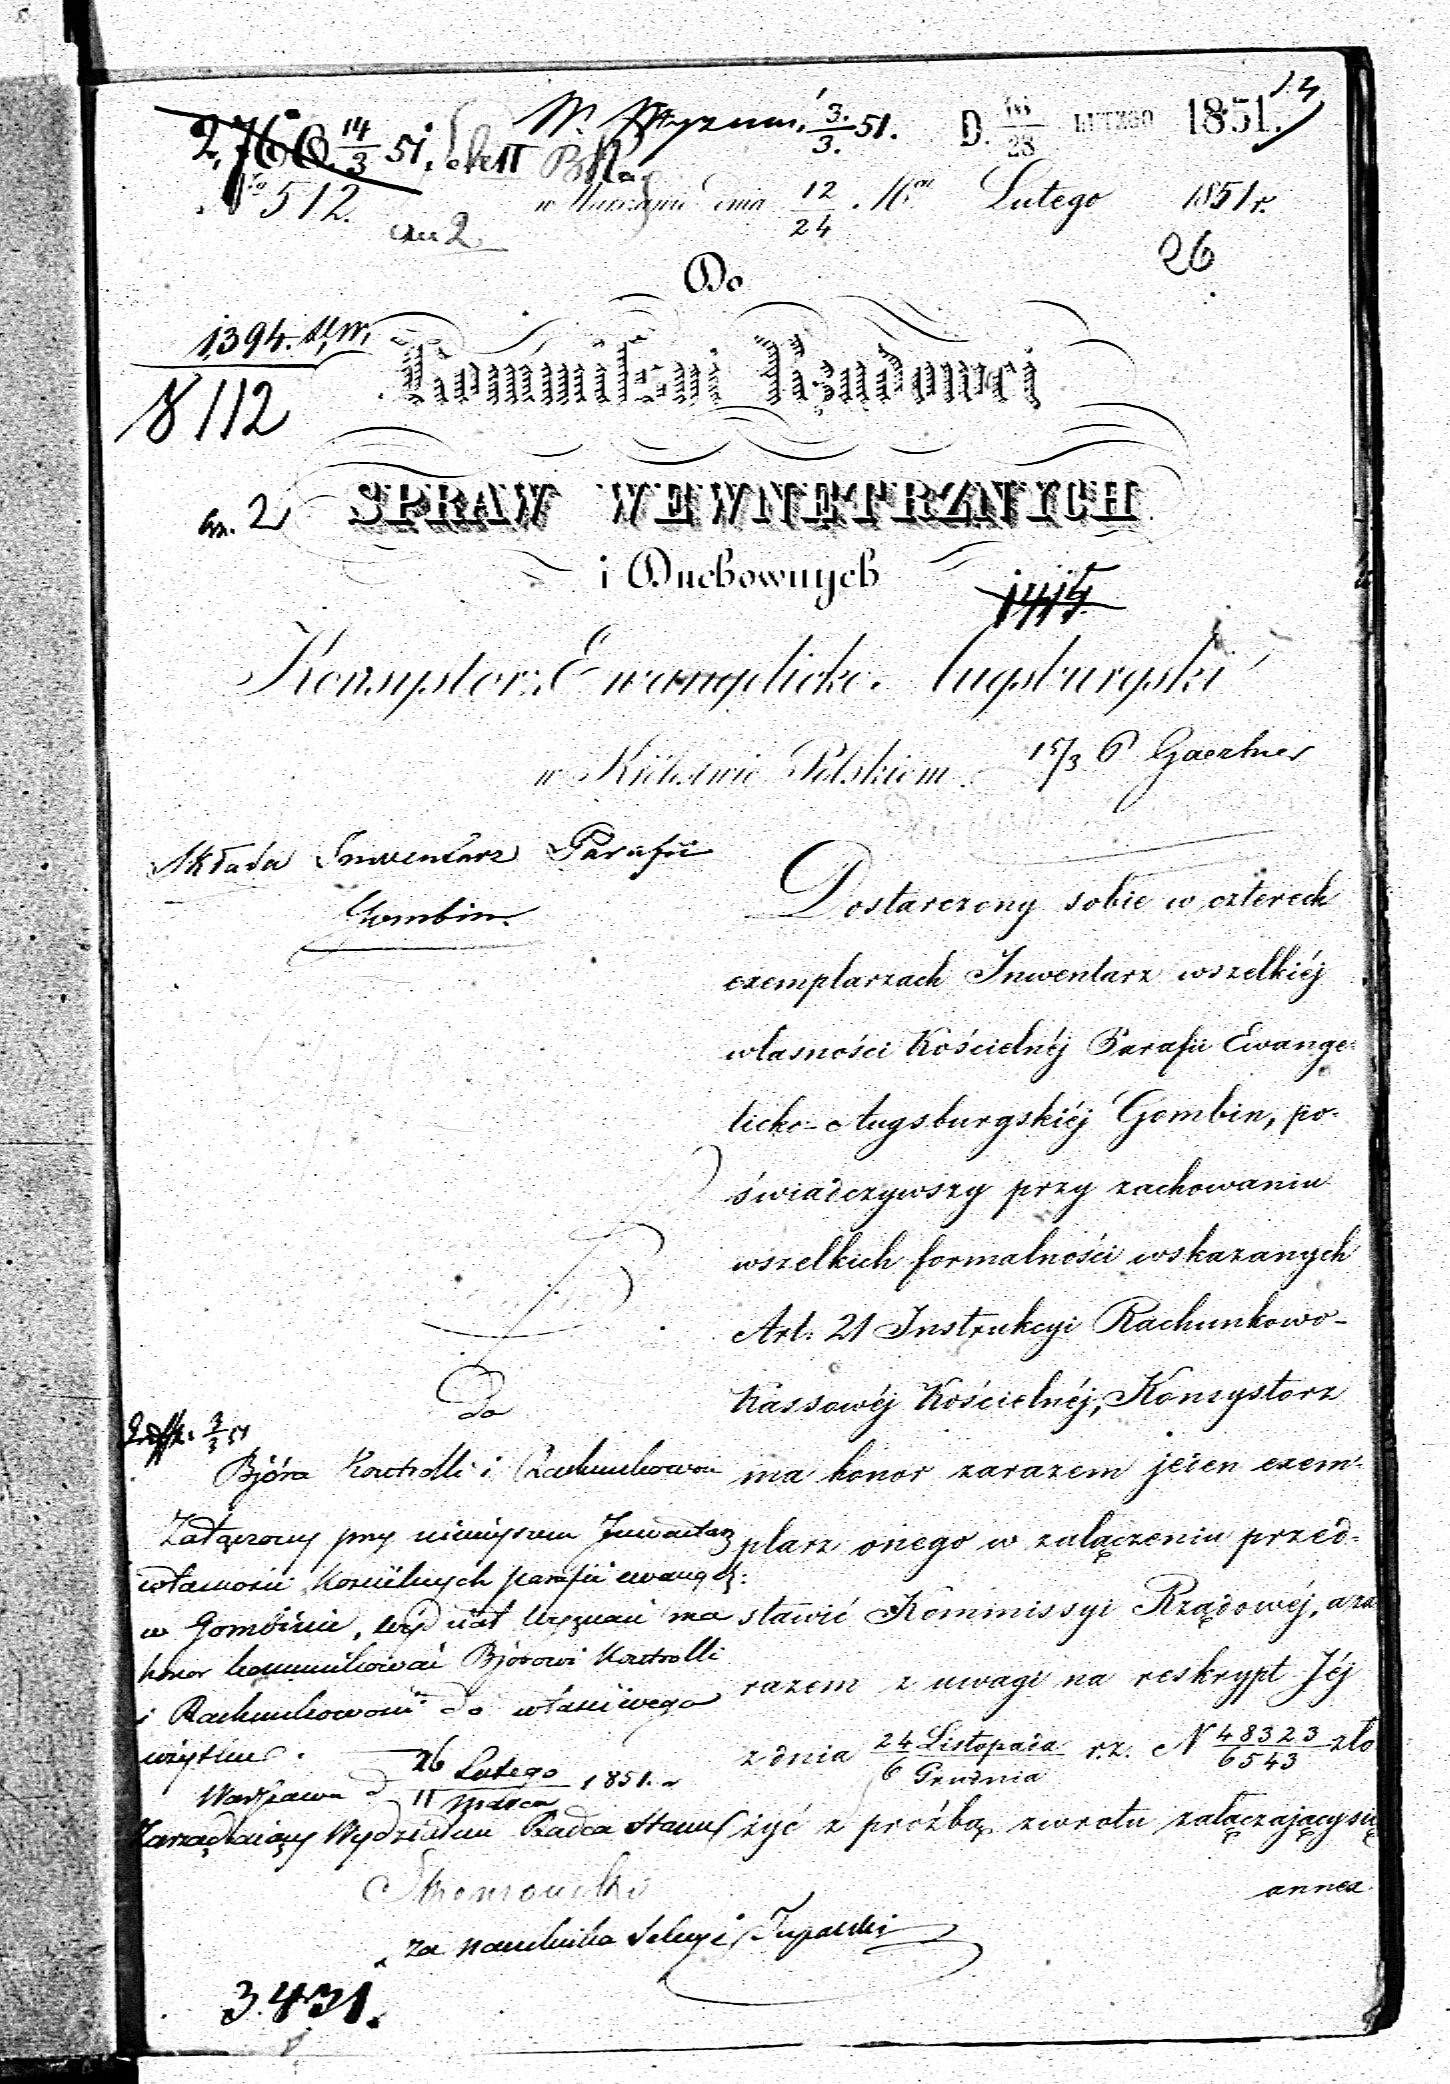 2,760. 14/3 51. Sekc II
W. Wyznań, 3./3. 51.
D. 16/28 LUTEGO 1851.
No 512.
w Warszawie dnia 12/24 Lutego 1851 r.
an 2
26
Do
1394.
8112
Kommissyi Rządowej
an. 2
SPRAW WEWNĘTRZNYCH
i Duchownych
1415
Konsystorz Ewangelicko-Augsburgski
w Królestwie Polskiem.
15/3 Gaertner
Składa Inwentarz Parafii
Gombin.
Dostarczony sobie w czterech
exemplarzach Inwentarz wszelkiéj
własności Kościelnéj Parafii Ewange-
licko-Augsburgskiéj Gombin, po-
świadczywszy przy zachowaniu
wszelkich formalności wskazanych
Art. 21 Instrukcyi Rachunkowo-
Kassowéj Kościelnéj, Konsystorz
ma honor zarazem jeden exem-
plarz onego w załączeniu przed-
stawić Kommissyi Rządowéj, a za-
razem z uwagi na reskrypt Jéj
z dnia 24 Listopada/6 Grudnia r.z. N 48323/6543 zło-
żyć z prośbą zwrotu załączający się
annex
Do
3/3 51
Bjóra Kontrolli i Rachunkowości
Załączony przy niniejszem Inwentarz
własności Kościelnych parafii ewangel:
w Gombinie, Wydział Wyznań ma
honor kommunikować Bjórowi Kontrolli
i Rachunkowości do właściwego
użytku.
Warszawa d 26 Lutego/11 Marca 1851. r
Zarządzający Wydziałem Radca Stanu
za Naczelnika Sekcyi
3.431.